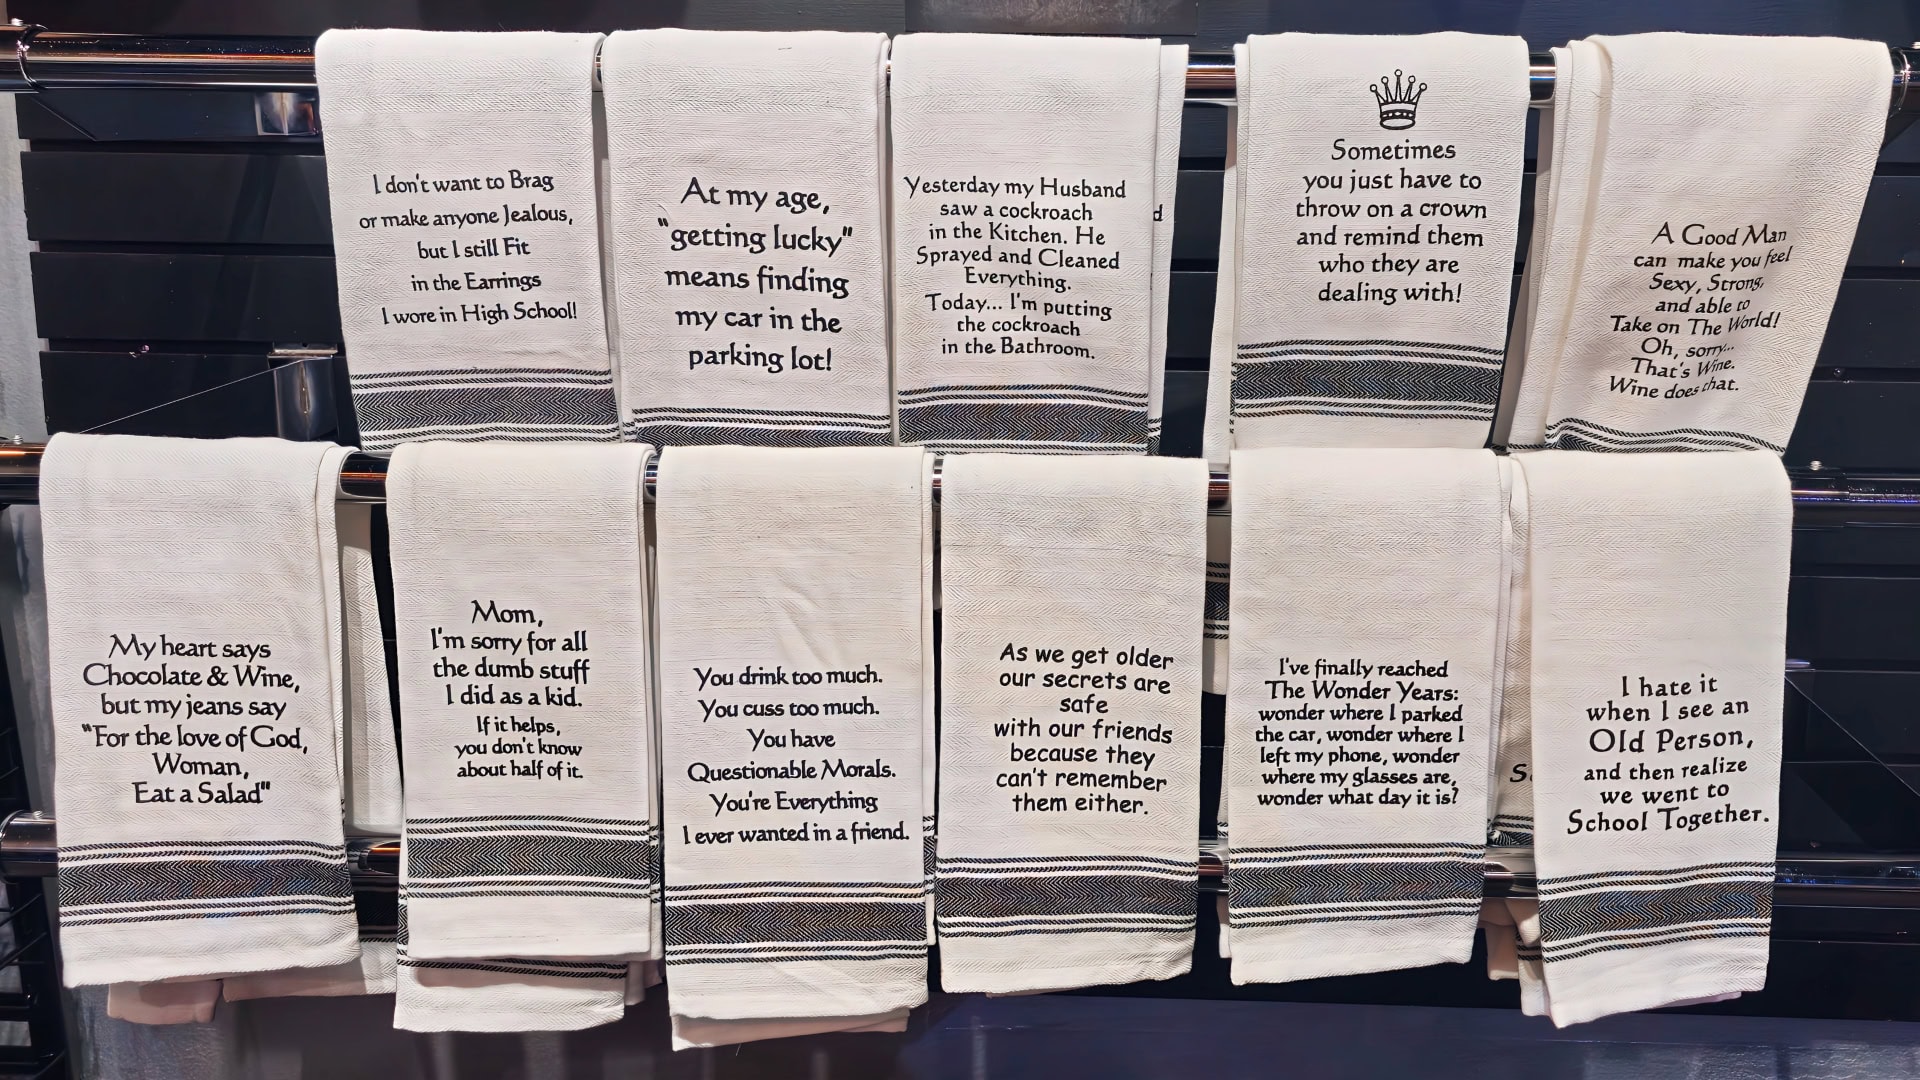 I don't want to Brag
or make anyone Jealous,
but I still Fit
in the Earrings
I wore in High School!
At my age,
"getting lucky"
means finding
my car in the
parking lot!
Yesterday my Husband
saw a cockroach
in the Kitchen. He
Sprayed and Cleaned
Everything.
Today... I'm putting
the cockroach
in the Bathroom.
d
Sometimes
you just have to
throw on a crown
and remind them
who they are
dealing with!
A Good Man
can make you feel
Sexy, Strong,
and able to
Take on The World!
Oh, sorry...
That's Wine.
Wine does that.
My heart says
Chocolate & Wine,
but my jeans say
"For the love of God,
Woman,
Eat a Salad"
Mom,
I'm sorry for all
the dumb stuff
I did as a kid.
If it helps,
you don't know
about half of it.
You drink too much.
You cuss too much.
You have
Questionable Morals.
You're Everything
I ever wanted in a friend.
As we get older
our secrets are
safe
with our friends
because they
can't remember
them either.
I've finally reached
The Wonder Years:
wonder where I parked
the car, wonder where I
left my phone, wonder
where my glasses are,
wonder what day it is?
I hate it
when I see an
Old Person,
and then realize
we went to
School Together.